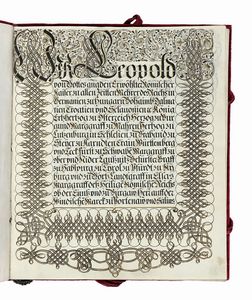 Wir Leopold
von Gottes gnaden Erwöhlter Römischer
Kaiser zu allen Zeitten Mehrer des Reichs in
Germanien zu Hungarn Böhaimb Dalma
tien Croatien und Sclavonien &c König
Ertzhertzog zu Österreich Hertzog zu Bur
gundt Marggraff zu Mährern Hertzog zu
Lutzenburg in Schlesien zu Brabandt zu
Steyer zu Karndten zu Crain Würtenberg
und Teckh Fürst zu Schwaben Marggraff zu
ober und Nider Laußnitz Gefürster Graff
zu Habspurg zu Tyrol zu Pfirdt zu Ky
burg und zu Görtz Landtgraff in Elsass
Marggraff des Heiligen Römischen Reichs
ob der Ennß und zu Burgaw Herr auf der
Windischen Marck zu Portenaw und Salins